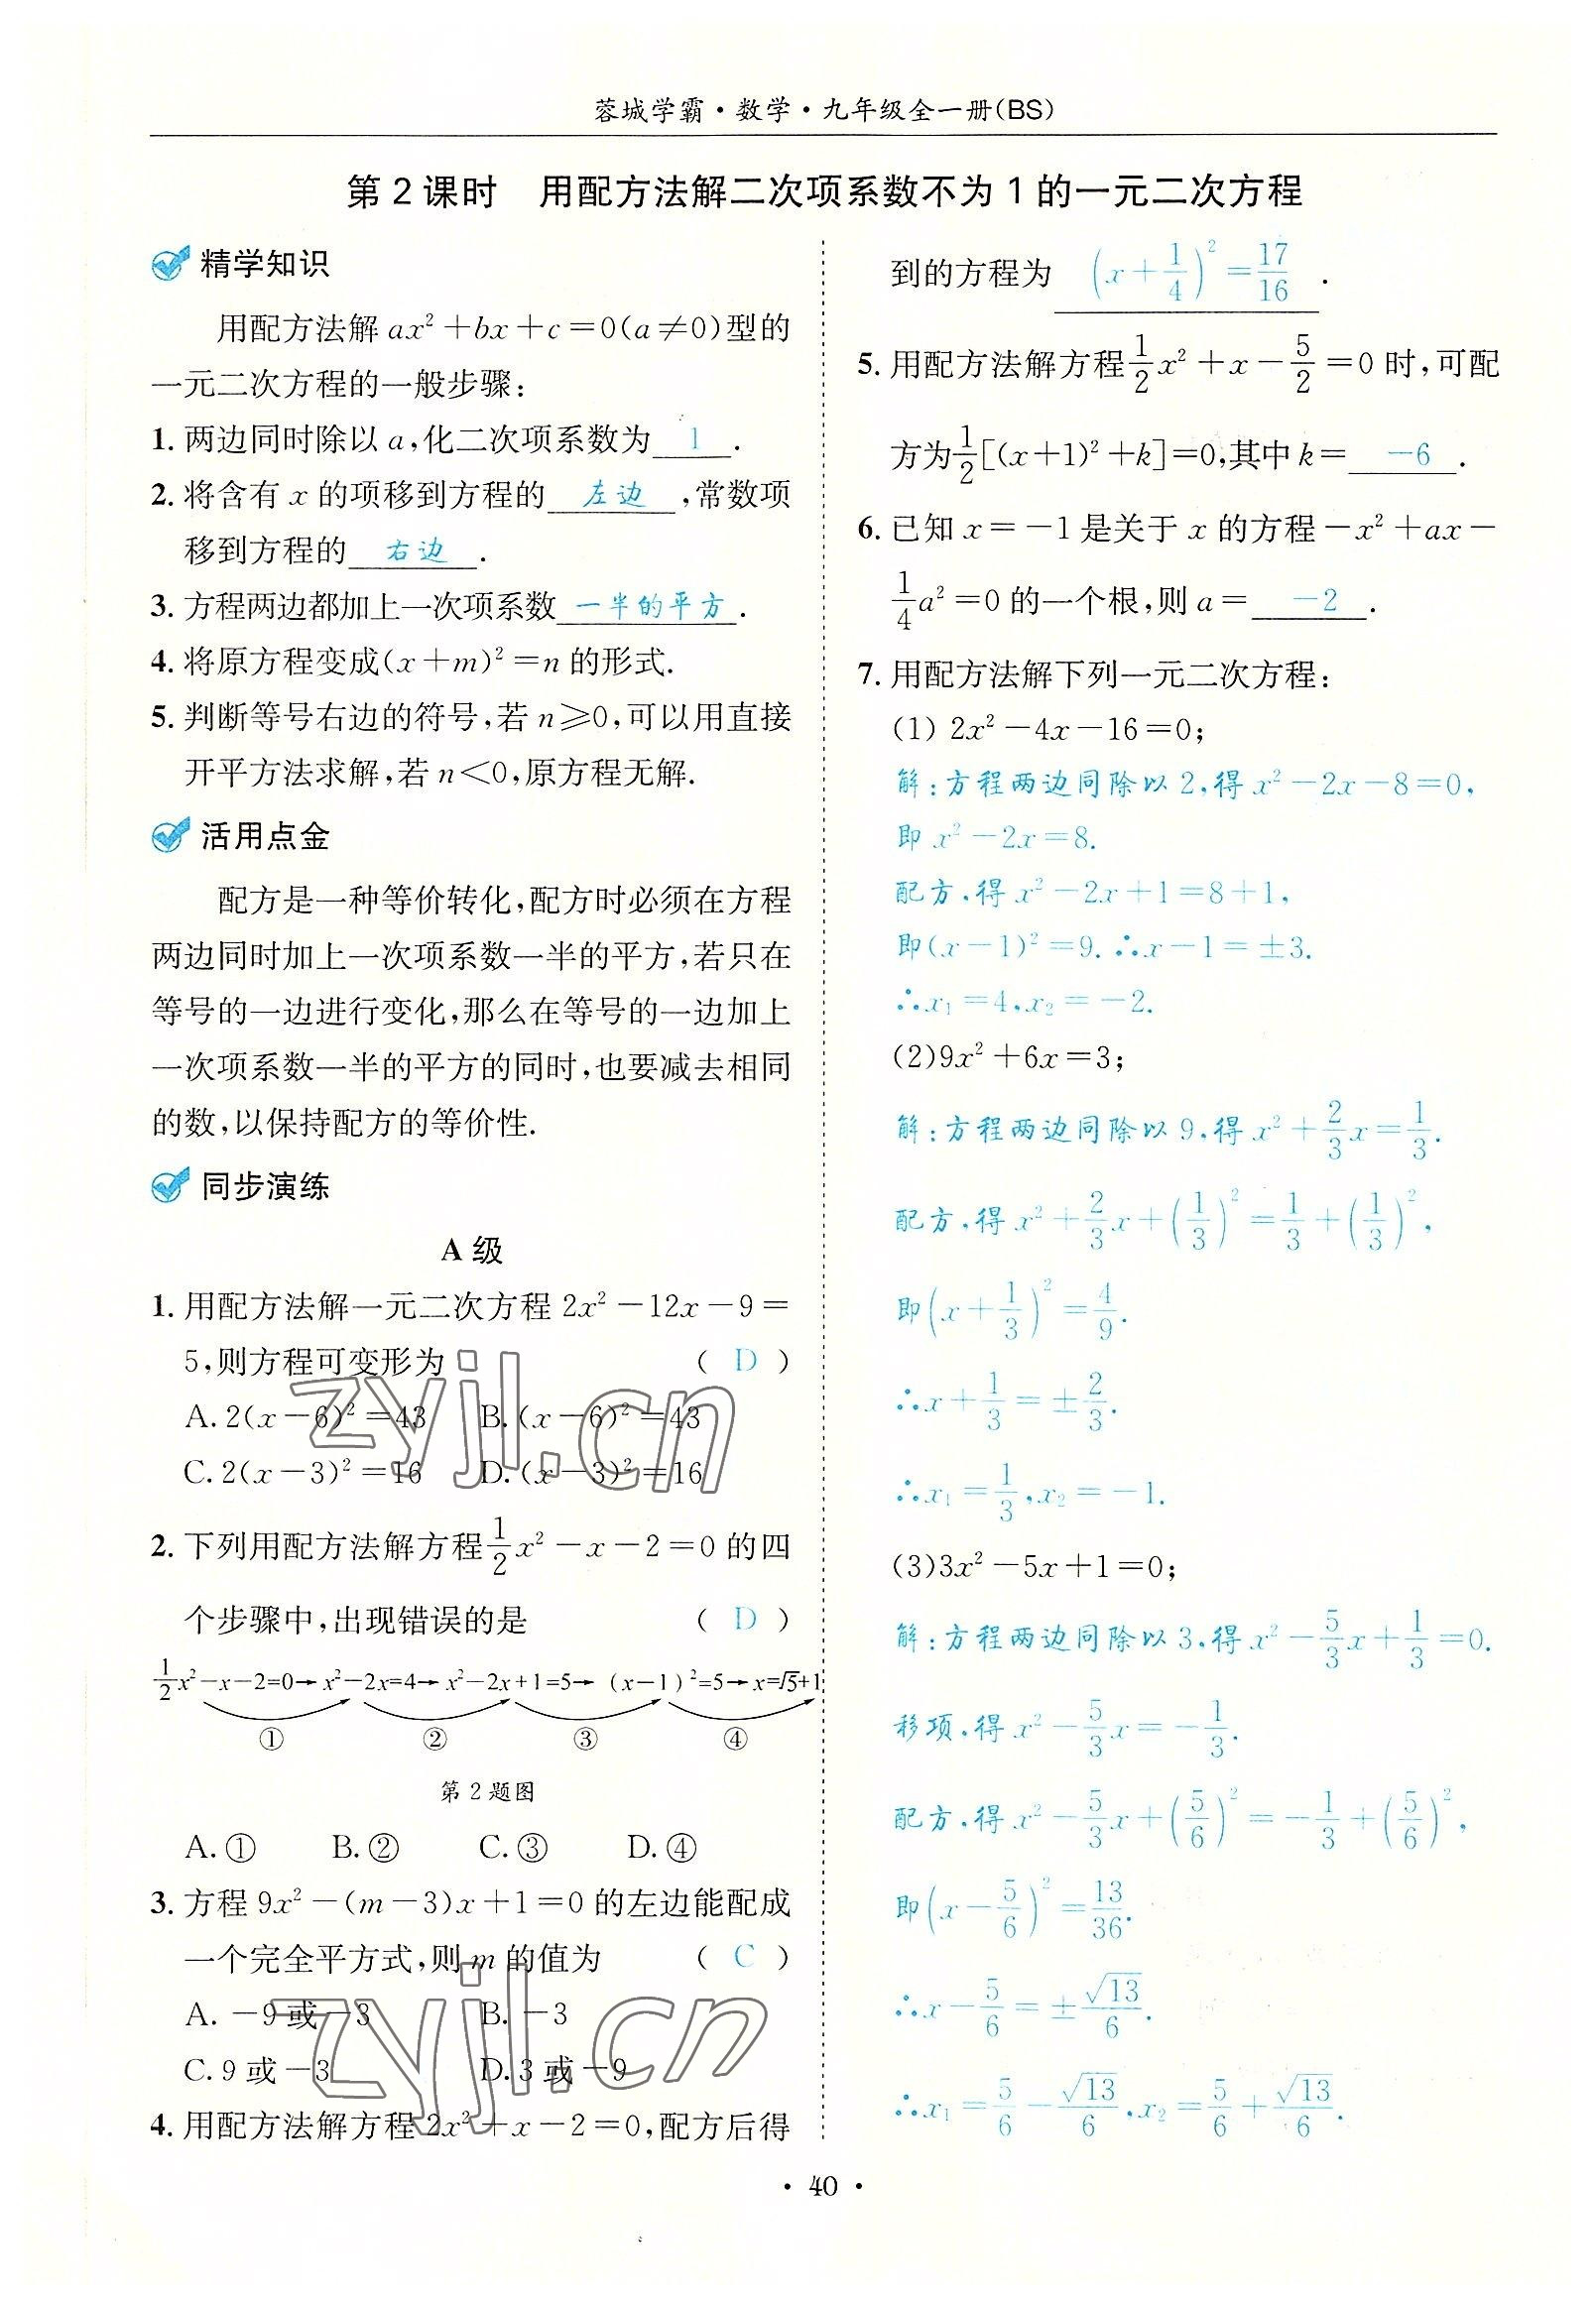 蓉城学霸·数学·九年级全一册(BS)
第2课时 用配方法解二次项系数不为1的一元二次方程
精学知识
用配方法解 ax²+bx+c=0(a≠0)型的
一元二次方程的一般步骤:
1. 两边同时除以 a,化二次项系数为 1 .
2. 将含有 x 的项移到方程的 左边 ,常数项
移到方程的 右边 .
3. 方程两边都加上一次项系数 一半的平方 .
4. 将原方程变成(x+m)²=n 的形式.
5. 判断等号右边的符号,若 n≥0,可以用直接
开平方法求解,若 n<0,原方程无解.
活用点金
配方是一种等价转化,配方时必须在方程
两边同时加上一次项系数一半的平方,若只在
等号的一边进行变化,那么在等号的一边加上
一次项系数一半的平方的同时,也要减去相同
的数,以保持配方的等价性.
同步演练
A 级
1. 用配方法解一元二次方程 2x²-12x-9=
5,则方程可变形为 ( D )
A. 2(x-6)²=43 B. (x-6)²=43
C. 2(x-3)²=16 D. (x-3)²=16
2. 下列用配方法解方程 1/2 x²-x-2=0 的四
个步骤中,出现错误的是 ( D )
1/2 x²-x-2=0→x²-2x=4→x²-2x+1=5→(x-1)²=5→x=√5+1
① ② ③ ④
第2题图
A. ① B. ② C. ③ D. ④
3. 方程 9x²-(m-3)x+1=0 的左边能配成
一个完全平方式,则 m 的值为 ( C )
A. -9或-3 B. -3
C. 9或-3 D. 3或-9
4. 用配方法解方程 2x²+x-2=0,配方后得
到的方程为 (x+1/4)²=17/16 .
5. 用配方法解方程 1/2 x²+x-5/2=0 时,可配
方为 1/2[(x+1)²+k]=0,其中 k= -6 .
6. 已知 x=-1 是关于 x 的方程-x²+ax-
1/4 a²=0 的一个根,则 a= -2 .
7. 用配方法解下列一元二次方程:
(1) 2x²-4x-16=0;
解:方程两边同除以 2,得 x²-2x-8=0,
即 x²-2x=8.
配方,得 x²-2x+1=8+1,
即(x-1)²=9. ∴x-1=±3.
∴x₁=4,x₂=-2.
(2)9x²+6x=3;
解:方程两边同除以 9,得 x²+2/3 x=1/3.
配方,得 x²+2/3 x+(1/3)²=1/3+(1/3)²,
即(x+1/3)²=4/9.
∴x+1/3=±2/3.
∴x₁=1/3,x₂=-1.
(3)3x²-5x+1=0;
解:方程两边同除以 3,得 x²-5/3 x+1/3=0.
移项,得 x²-5/3 x=-1/3.
配方,得 x²-5/3 x+(5/6)²=-1/3+(5/6)²,
即(x-5/6)²=13/36.
∴x-5/6=±√13/6.
∴x₁=5/6-√13/6,x₂=5/6+√13/6.
zyjl.cn
zyjl.cn
· 40 ·